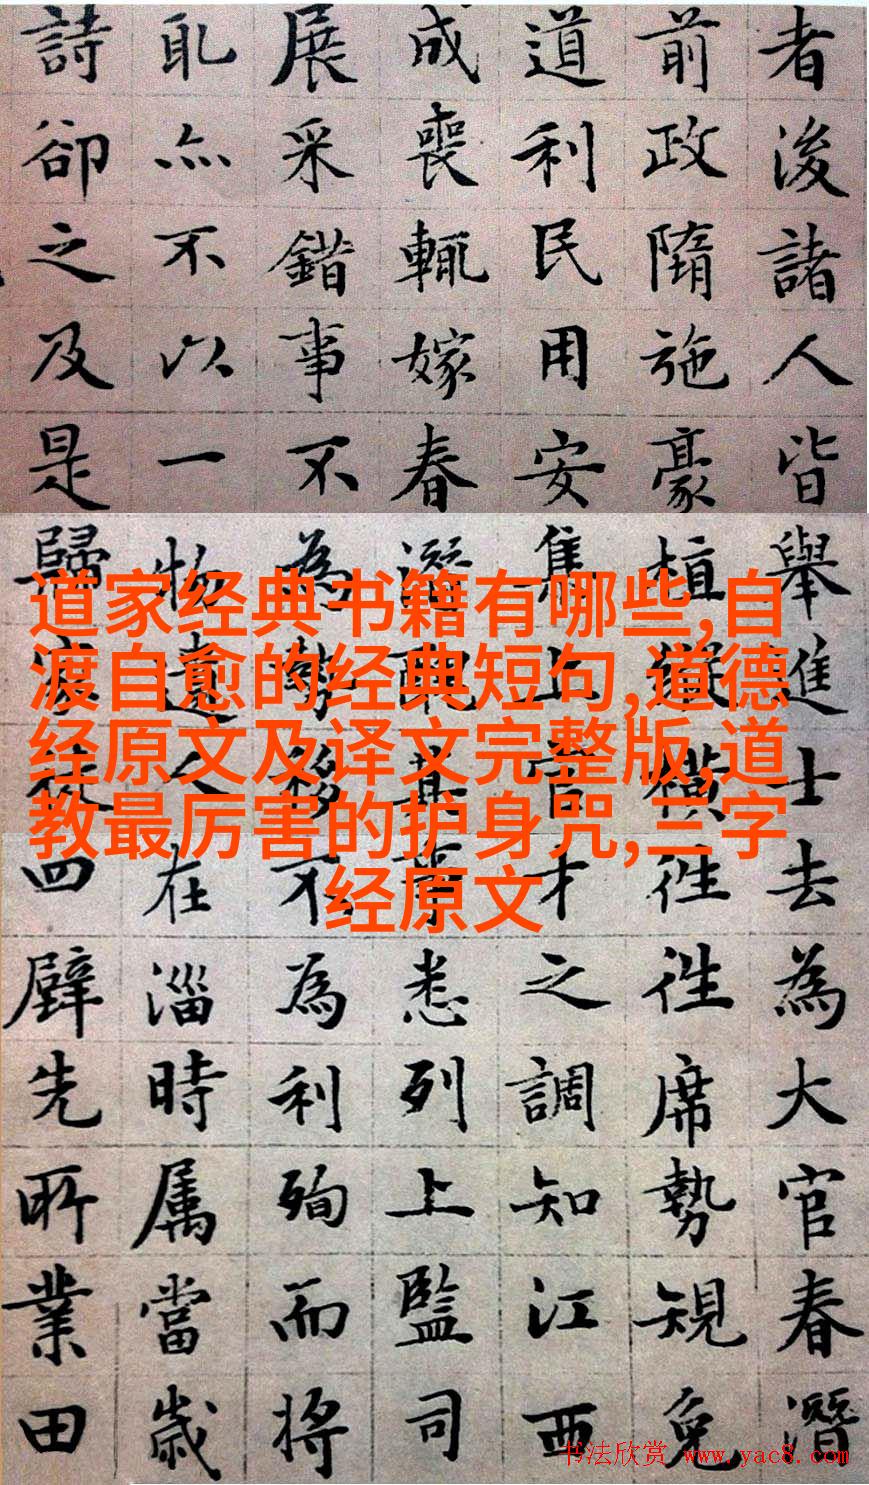 者後諸人皆舉進士去為大官春潛
前政隋施豪植縱橫往往席勢規免
道利民用安集上才之調知江西
成喪輒嫁春潛其事悉列上監司
展采錯事不為勢移不為利殉而將
恥亦不以一物遺人在淄時属當歲
詩卻之及是歸家徒四壁先所業田
道家经典书籍有哪些,自
渡自愈的经典短句,道德
经原文及译文完整版,道
教最厉害的护身咒,三字
经原文
书法欣赏 www.yac8.com